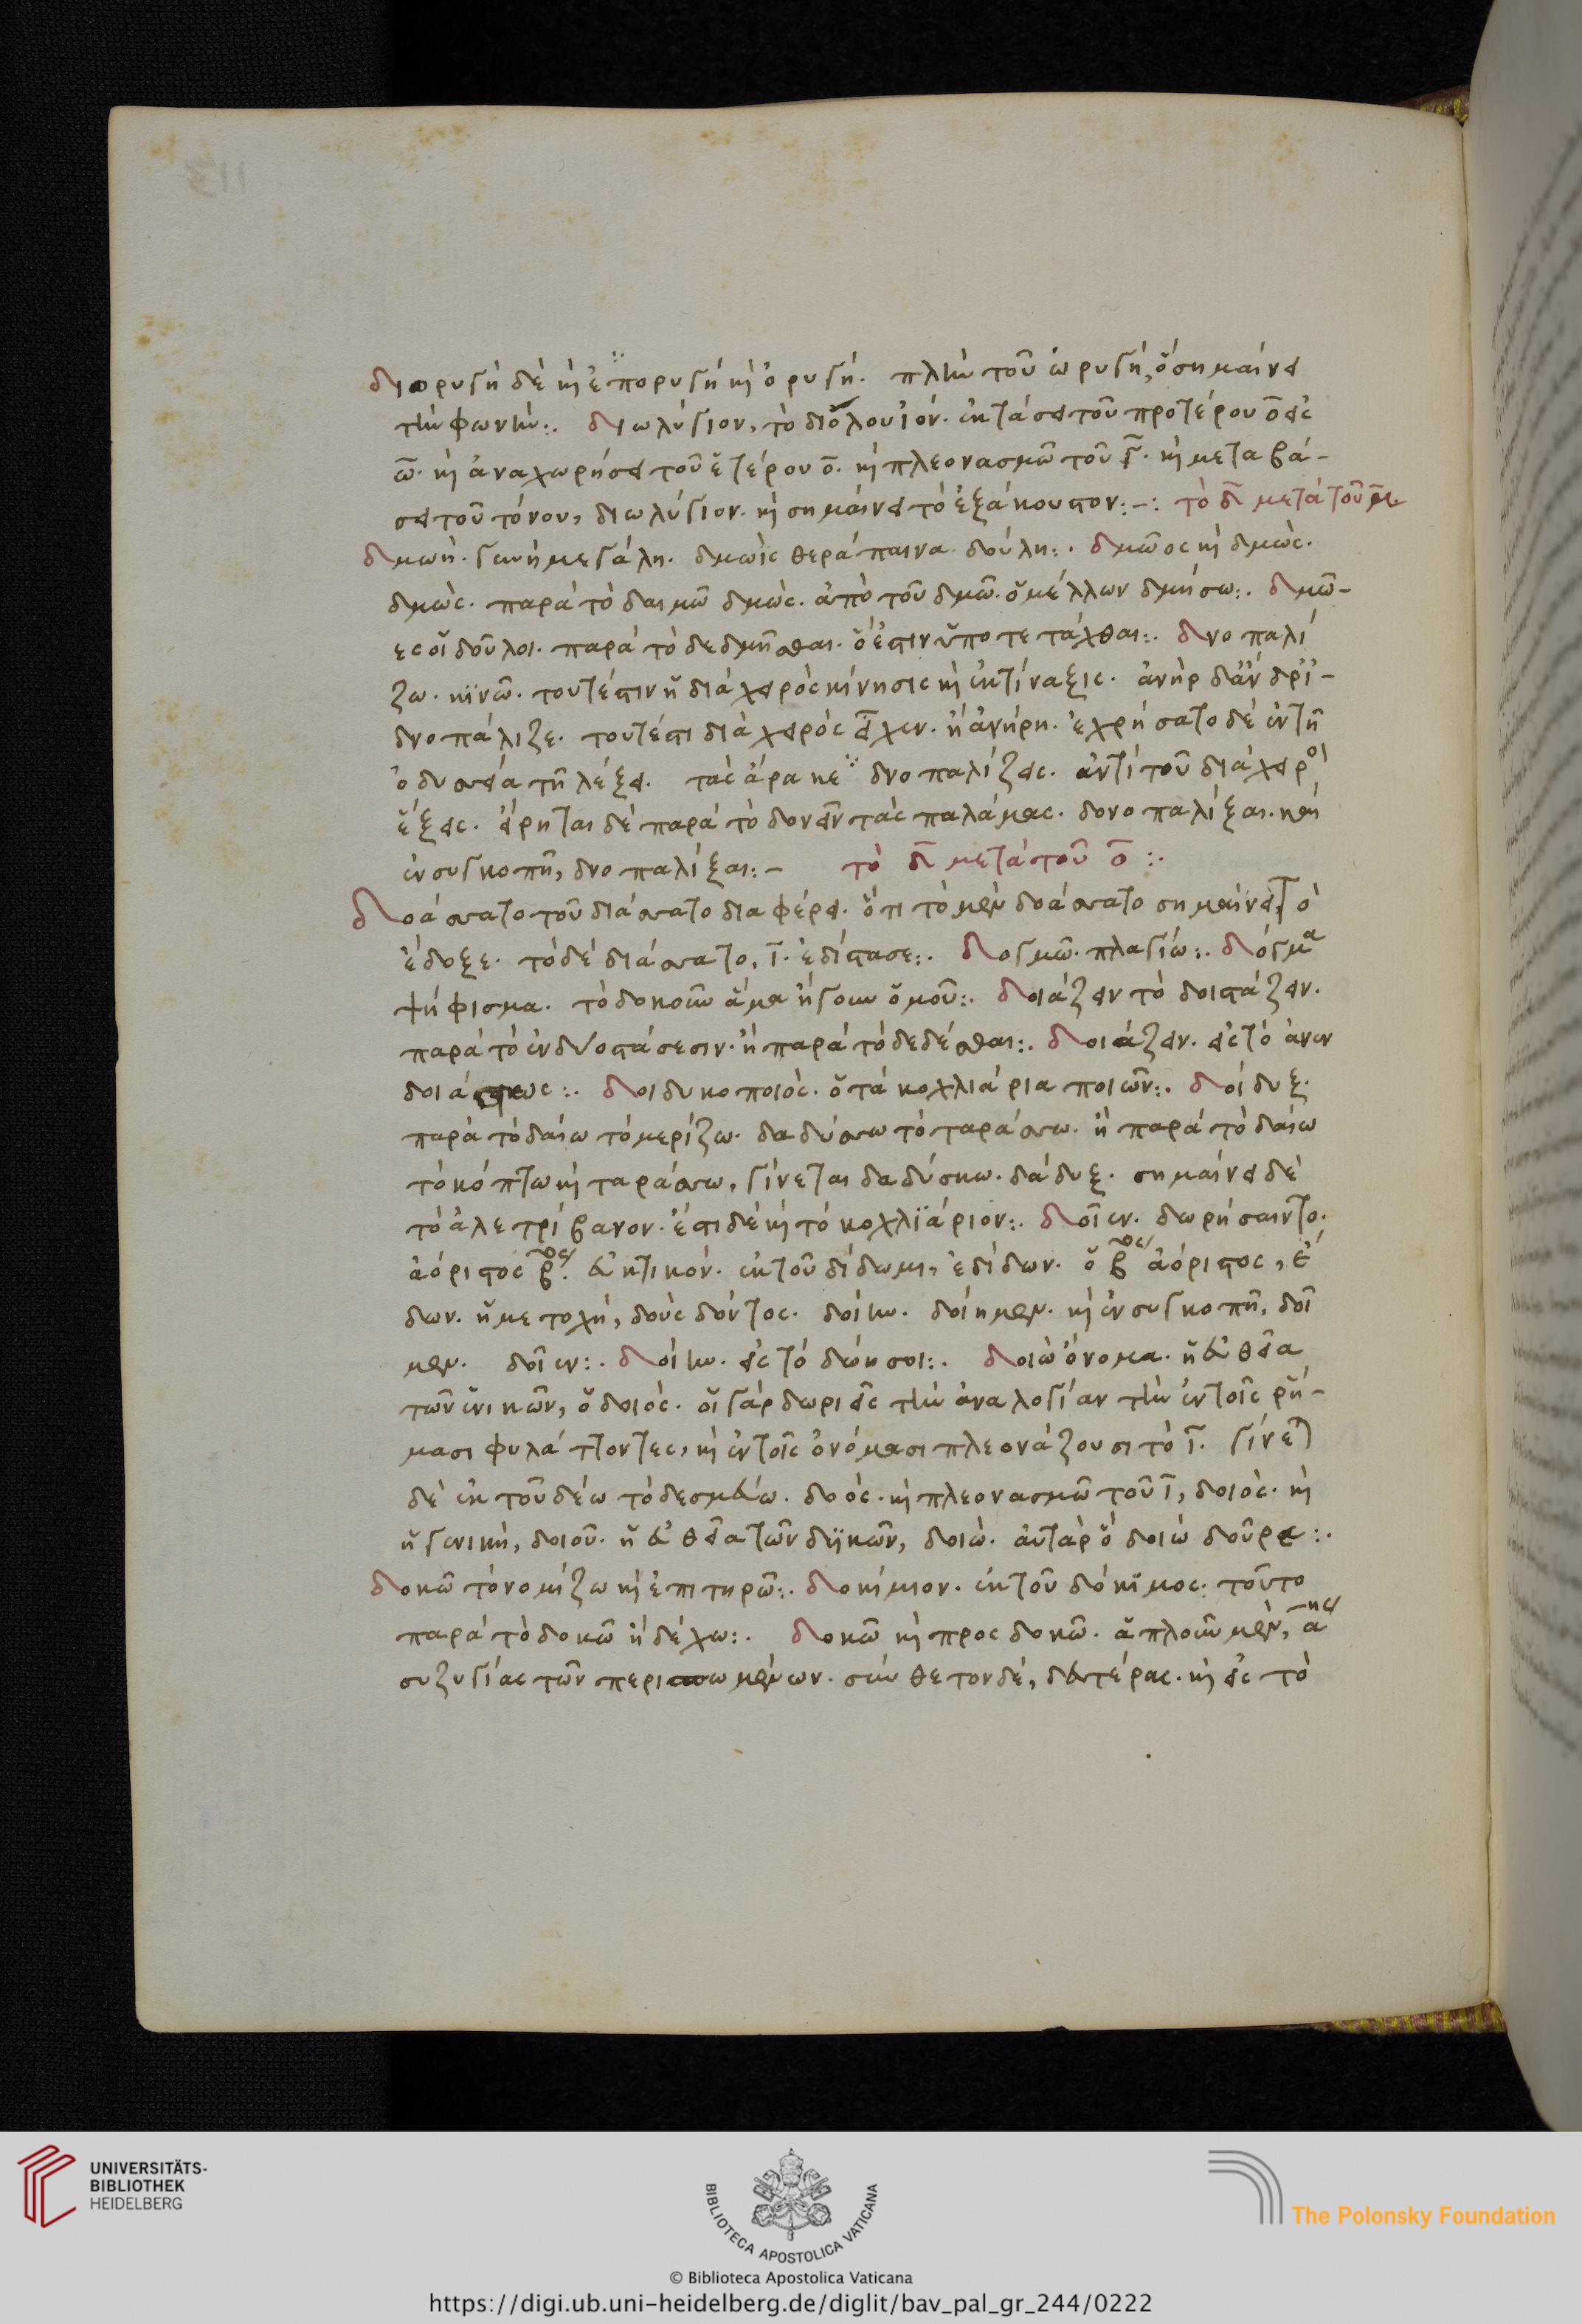 διορυγὴ δὲ κὶ ἐπορυγὴ κὶ ὀρυγή. πλὴν τοῦ ὠρυγή, ὃ σημαίνει
τὴν φωνήν:. διωλύγιον, τὸ διόλουϊόν. ἐκτάσει τοῦ προτέρου ο̅ εἰς
ω̅. κὶ ἀναχωρήσει τοῦ ἑτέρου ο̅. κὶ πλεονασμῶ τοῦ γ̅. κὶ μεταβά-
σει τοῦ τόνου, διωλύγιον. κὶ σημαίνει τὸ ἐξάκουστον:-: τὸ δ̅ μετὰ τοῦ μ̅
δμωή. γυνὴ μεγάλη. δμωῒς θεράπαινα δούλη:. δμῶος κὶ δμώς.
δμώς. παρὰ τὸ δαιμῶ δμώς. ἀπὸ τοῦ δμῶ. ὁ μέλλων δμήσω:. δμῶ-
ες οἱ δοῦλοι. παρὰ τὸ δεδμῆσθαι. ὅ ἐστιν ὑποτετάχθαι:. δνοπαλί
ζω. κινῶ. τουτέστιν ἡ διὰ χειρὸς κίνησις κὶ ἐκτίναξις. ἀνὴρ δ' ἄνδρ' ἐ-
δνοπάλιζε. τουτέστι διὰ χειρὸς εἶχεν. ἢ ἀνήρη. ἐχρήσατο δὲ ἐν τῆ
ὀδυσσεία τῆ λέξει. τὰς ἄρα κε δνοπαλίζεις. ἀντὶ τοῦ διὰ χειρὸ
ἕξεις. εἴρηται δὲ παρὰ τὸ δονεῖν τὰς παλάμας. δονοπαλίξαι. καὶ
ἐν συγκοπῆ, δνοπαλίξαι:- τὸ δ̅ μετὰ τοῦ ο̅:.
δοάσσατο τοῦ διάσσατο διαφέρει. ὅτι τὸ μὲν δοάσσατο σημαίνει τὸ
ἔδοξε. τὸ δὲ διάσσατο, ι̅. ἐδίστασε:. δογμῶ. πλαγίω:. δόγμα
ψήφισμα. τὸ δοκοῦν ἅμα ἤγουν ὁμοῦ:. δοιάζειν τὸ δοιστάζειν.
παρὰ τὸ ἐν δυοστάσεσιν. ἢ παρὰ τὸ δεδέσθαι:. δοιάζειν. εἰς τὸ ἄνευ
δοιάσεως:. δοιδυκοποιός. ὁ τὰ κοχλιάρια ποιῶν:. δοίδυξ.
παρὰ τὸ δαίω τὸ μερίζω. δαδύσσω τὸ ταράσσω. ἢ παρὰ τὸ δαίω
τὸ κόπτω κὶ ταράσσω, γίνεται δαδύσκω. δάδυξ. σημαίνει δὲ
τὸ ἀλετρίβανον. ἔστι δὲ κὶ τὸ κοχλϊάριον:. δοῖεν. δωρήσαιντο.
ἀόριστος β̅ος. εὐκτικόν. ἐκ τοῦ δίδωμι, ἐδίδων. ὁ β̅ος ἀόριστος, ἔ
δων. ἡ μετοχή, δοὺς δόντος. δοίην. δοίημεν. κὶ ἐν συγκοπῆ, δοῖ
μεν. δοῖεν:. δοίην. εἰς τὸ δώησοι:. δοιὼ ὄνομα. ἡ εὐθεῖα
τῶν ἑνικῶν, ὁ δοιός. οἱ γὰρ δωριεῖς τὴν ἀναλογίαν τὴν ἐν τοῖς ῥή-
μασι φυλάττοντες, κὶ ἐν τοῖς ὀνόμασι πλεονάζουσι τὸ ι̅. γίνε
δὲ ἐκ τοῦ δέω τὸ δεσμεύω. δοός. κὶ πλεονασμῶ τοῦ ι̅, δοιός. κὶ
ἡ γενική, δοιοῦ. ἡ εὐθεῖα τῶν δϋϊκῶν, δοιώ. αὐτὰρ ὁ δοιὼ δοῦρε:.
δοκῶ τὸ νομίζω κὶ ἐπιτηρῶ:. δοκίμιον. ἐκ τοῦ δόκϊμος. τοῦτο
παρὰ τὸ δοκῶ ἢ δέχω:. δοκῶ κὶ προσδοκῶ. ἁπλοῦν μὲν, α̅ης
συζυγίας τῶν περισπωμένων. σύνθετον δὲ, δευτέρας. κὶ εἰς τὸ
UNIVERSITÄTS-
BIBLIOTHEK
HEIDELBERG
BIBLIOTECA APOSTOLICA VATICANA
The Polonsky Foundation
© Biblioteca Apostolica Vaticana
https://digi.ub.uni-heidelberg.de/diglit/bav_pal_gr_244/0222